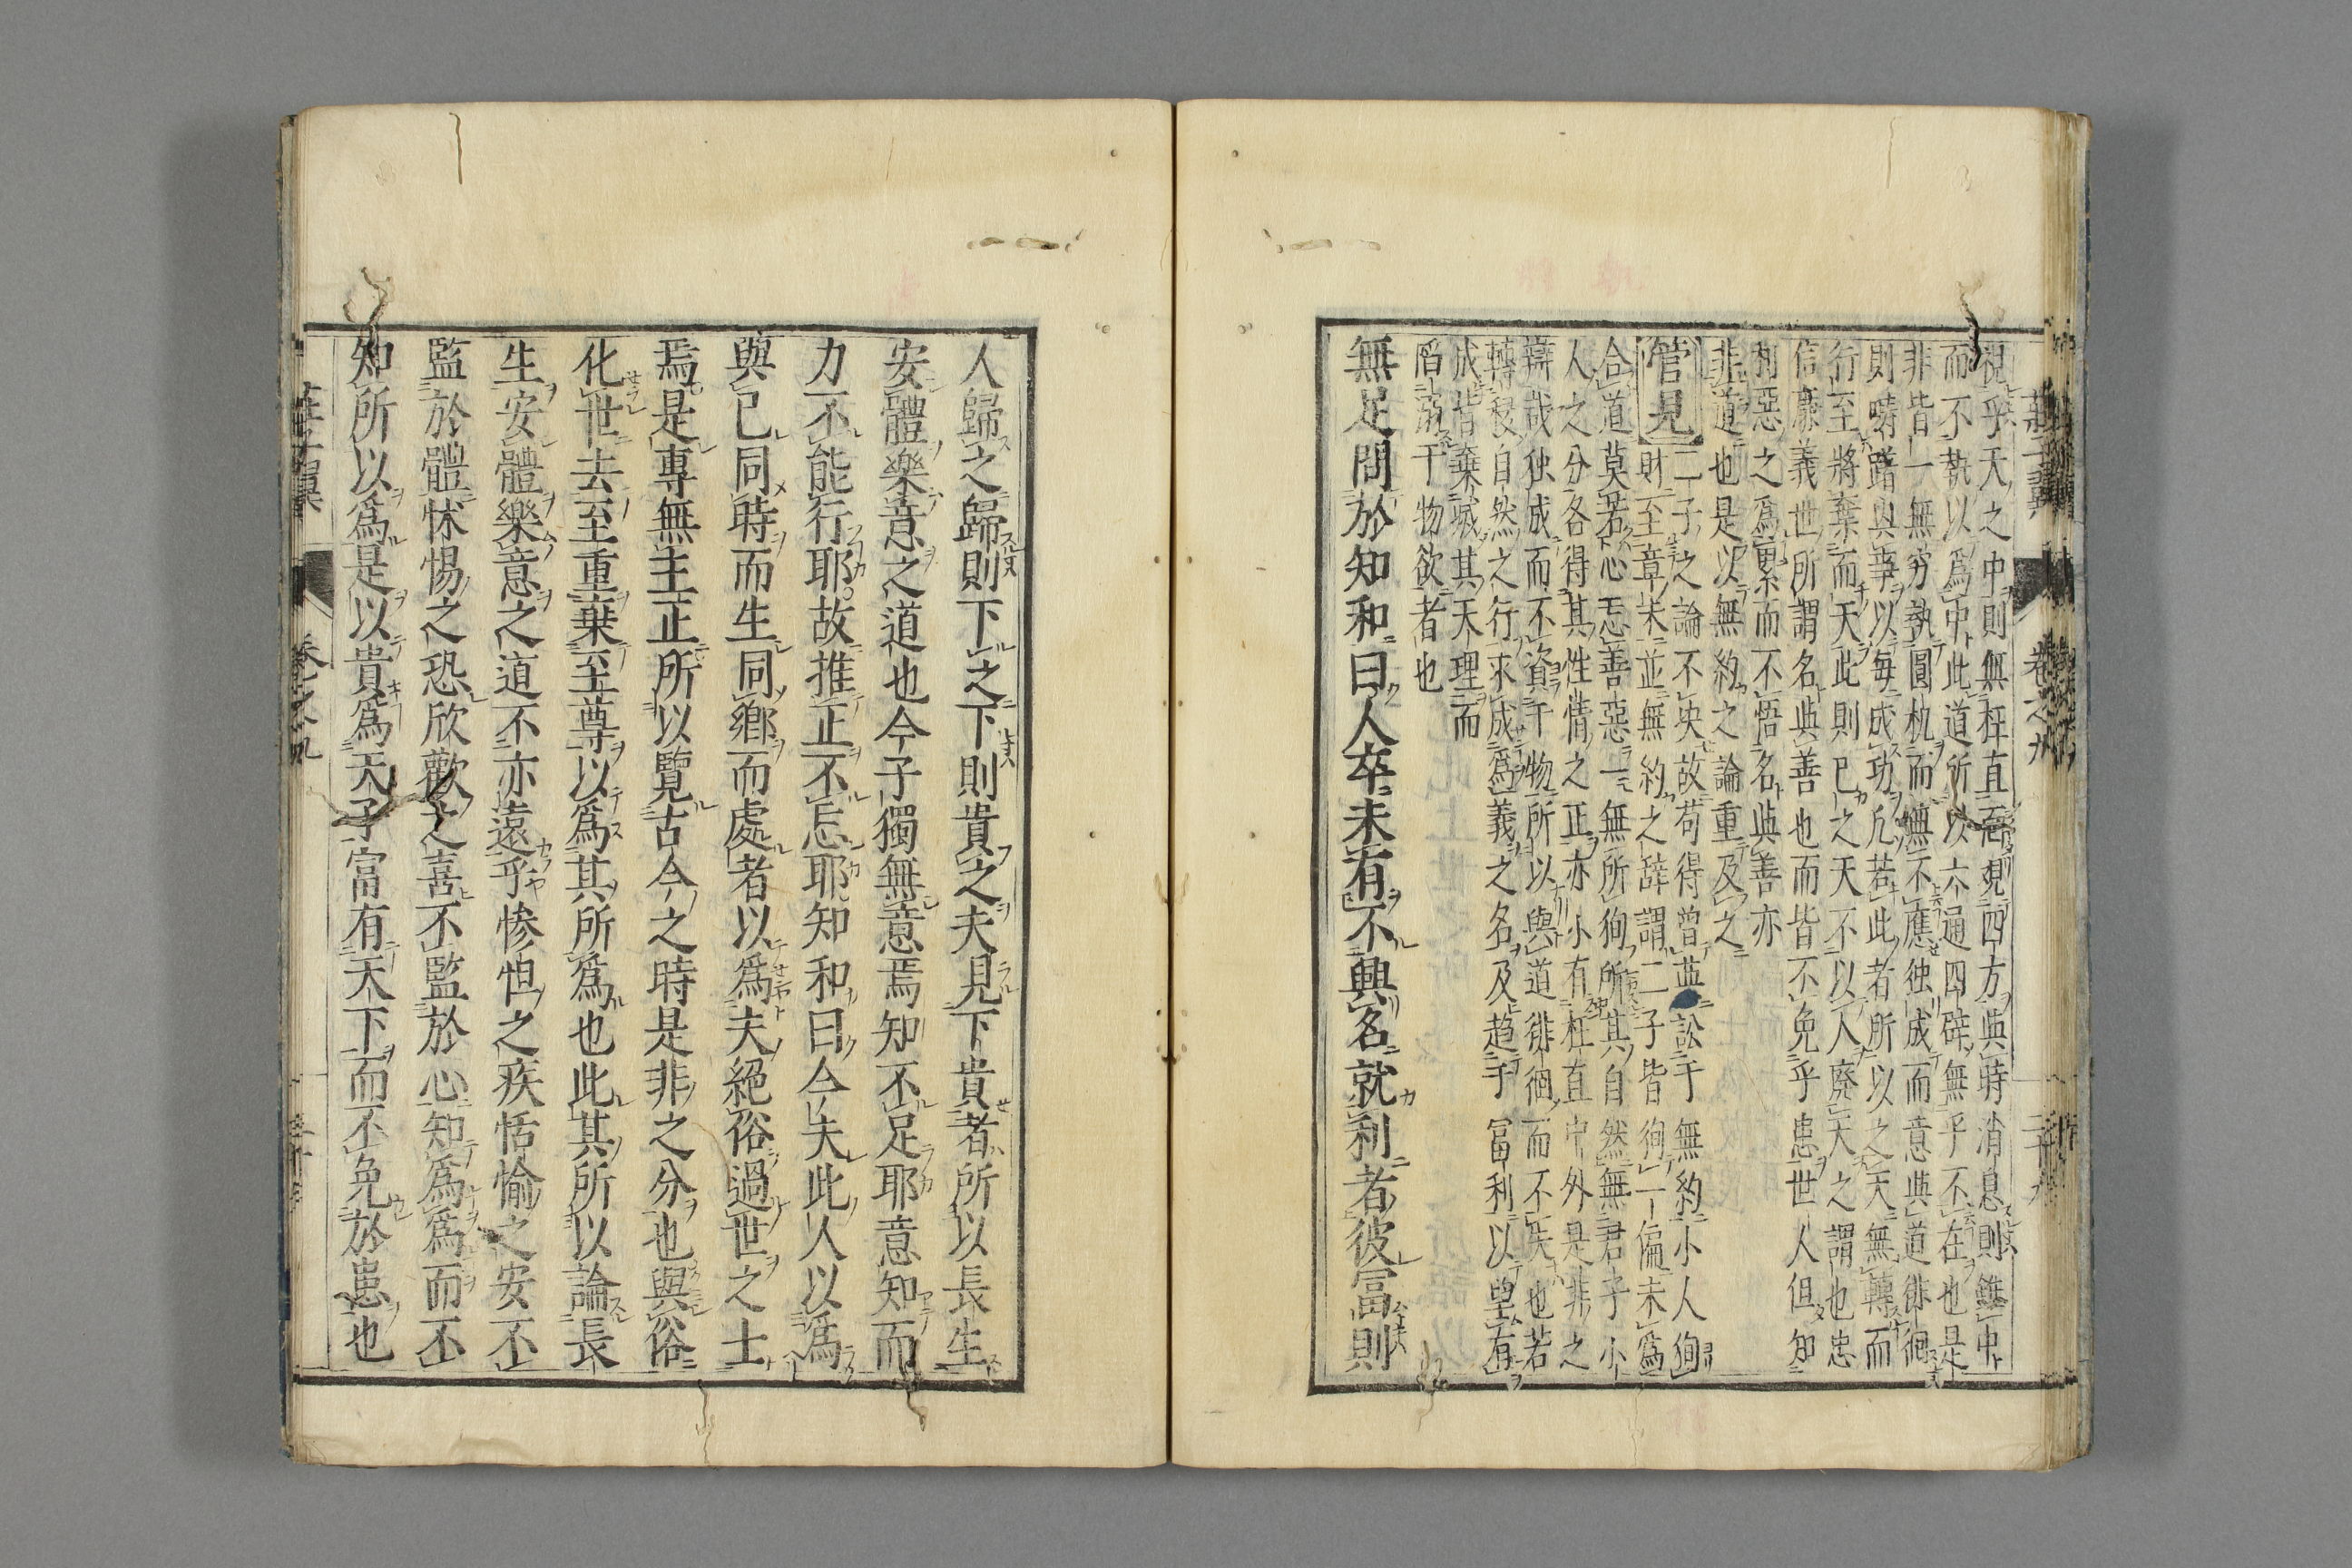 莊子翼 卷之九 二十九
視乎天之中則無枉直面觀四方與時消息則雖中
而不執以爲中此道所以六通四辟無乎不在也是
非皆一無窮執圓机而無不應独成而意與道徘徊
則疇蹠與爭以毎成功凢若此者所以之天無轉而
行至將棄而天此則已之天不以人廢天之謂也忠
信廉義世所謂名與善也而皆不免乎患世人但知
刑惡之爲累而不悟名與善亦
非道也是以無約之論重及之
管見 二子之論不决故苟得曾並訟于無約小人狥
財至章末並無約之辞謂二子皆狥一偏未爲
合道莫若心忘善惡一無所狥所其自然無君子小
人之分各得其性情之正亦小有枉直中外是非之
辯哉独成而不資于物所以與道徘徊而不失也若
轉役自然之行求成爲義之名及趋于冨利以望有
成皆棄喊其天理而
䧟溺于物欲者也
無足問於知和曰人卒未有不興名就利者彼冨則
人歸之歸則下之下則貴之夫見下貴者所以長生
安體樂意之道也今子獨無意焉知不足耶意知而
力不能行耶故推正不忘耶知和曰今夫此人以爲
與已同時而生同鄉而處者以爲夫絕俗過世之士
焉是專無主正所以覽古今之時是非之分也與俗
化世去至重棄至尊以爲其所爲也此其所以論長
生安體樂意之道不亦遠乎慘怛之疾恬愉之安不
監於體怵惕之恐欣歡之喜不監於心知爲爲而不
知所以爲是以貴爲天子富有天下而不免於患也
莊子翼 卷之九